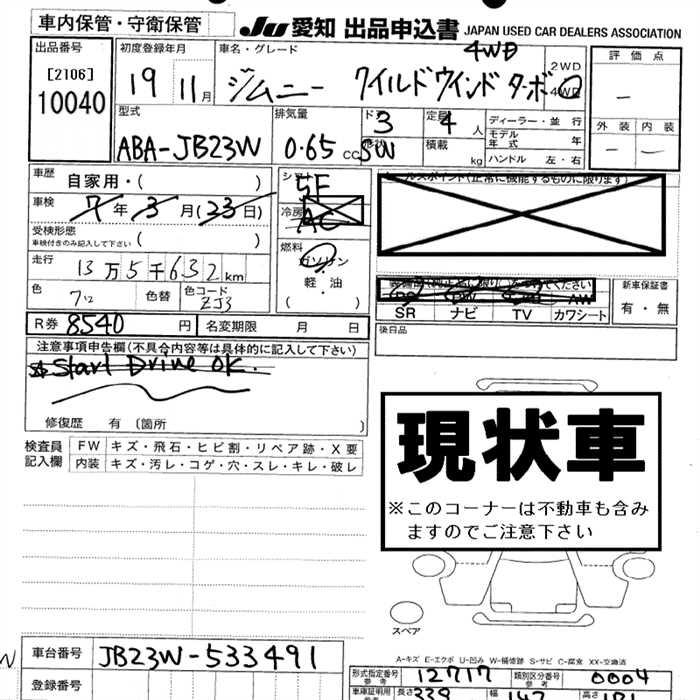 車内保管・守衛保管
JU 愛知 出品申込書 JAPAN USED CAR DEALERS ASSOCIATION
出品番号
[2106]
10040
初度登録年月
19 11月
車名・グレード
ジムニー ワイルドウインド ターボ
4WD
2WD
4WD
評価点
—
外装 内装
— —
型式
ABA-JB23W
排気量
0.65 cc
ドア
3
形状
5W
定員
4 人
積載
kg
ディーラー・並行
モデル年式 年
ハンドル 左・右
車歴
自家用・( )
車検
7年3月(23日)
受検形態
車検付きのみ記入して下さい ( )
走行
13万5千632km
色
色替
色コード
ZJ3
シフト
5F
冷房
AC
燃料
ガソリン
・
軽・油
( )
セールスポイント(正常に機能するものに限ります)
AW
SR ナビ TV カワシート
新車保証書
有・無
後日品
R券 8540 円
名変期限 月 日
注意事項申告欄(不具合内容等は具体的に記入して下さい)
☆Start Drive OK.
修復歴 有 〔箇所 〕
検査員記入欄
FW キズ・飛石・ヒビ割・リペア跡・X要
内装 キズ・汚レ・コゲ・穴・スレ・キレ・破レ
現状車
※このコーナーは不動車も含み
ますのでご注意下さい
スペア
A-キズ E-エクボ U-凹み W-補修跡 S-サビ C-腐食 XX-交換済
車台番号 JB23W-533491
登録番号
形式指定番号
参考
12717
類別区分番号
参考
0004
車庫証明用
長さ 339 幅 147 高さ